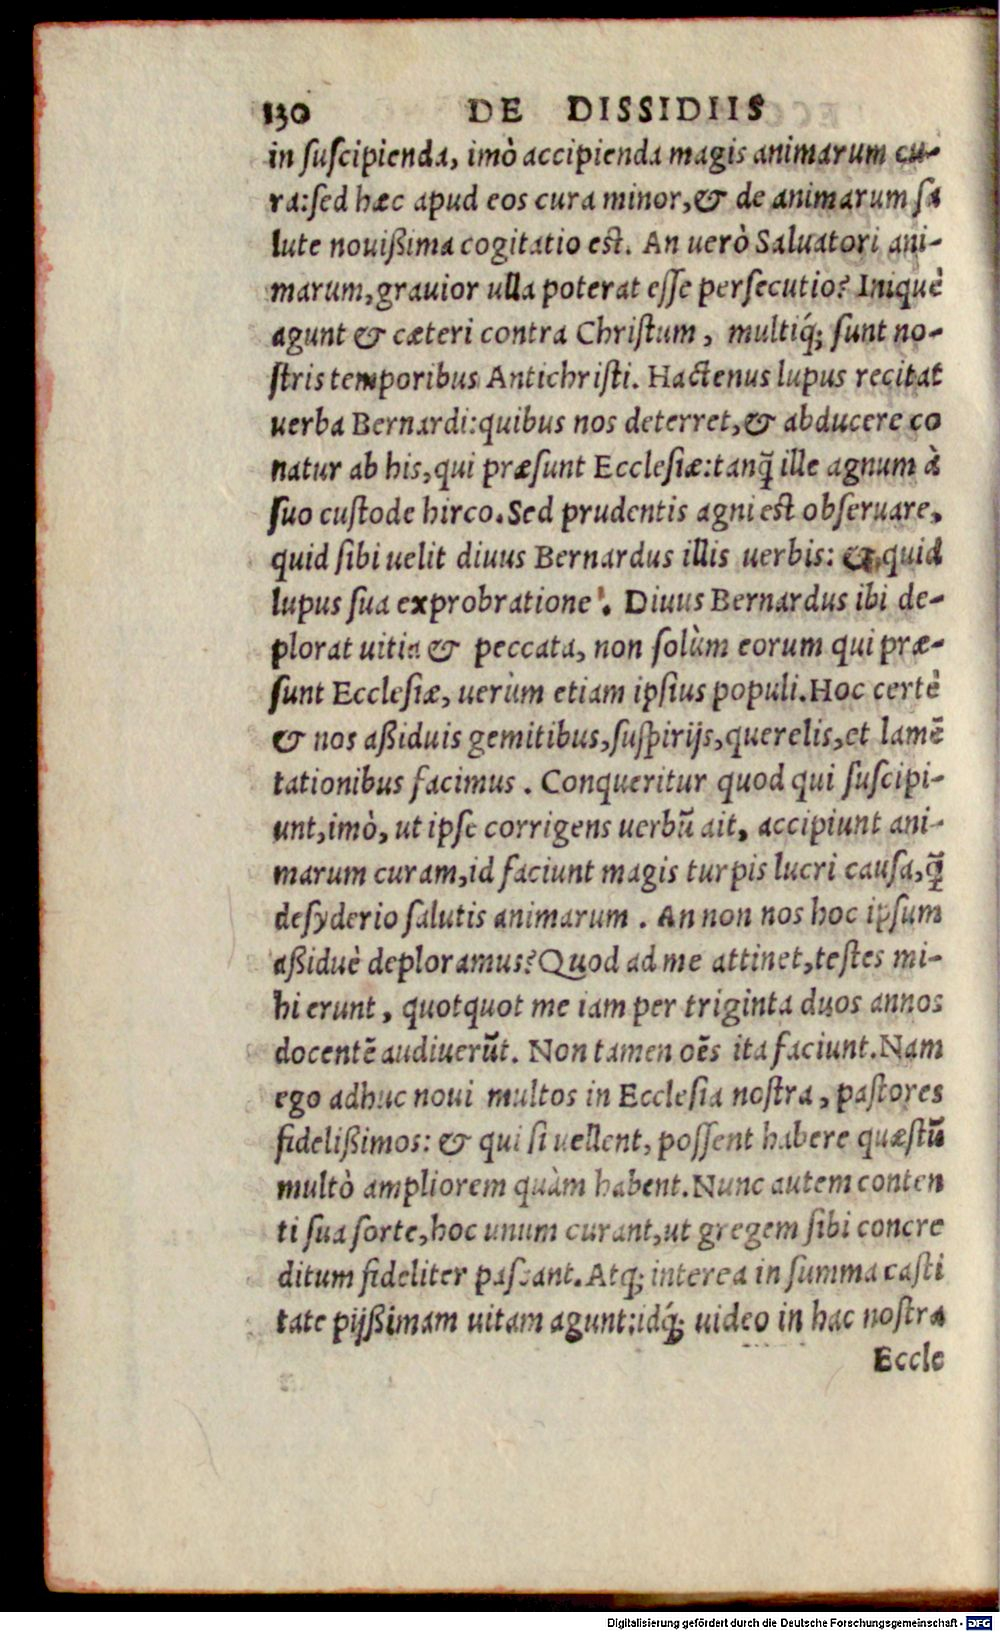 130 DE DISSIDIIS
in ſuſcipienda, imò accipienda magis animarum cu-
ra:ſed hæc apud eos cura minor,& de animarum ſa
lute nouißima cogitatio est. An uerò Saluatori ani-
marum,grauior ulla poterat eſſe perſecutio? Iniquè
agunt & cæteri contra Chriſtum, multiq́; ſunt no-
ſtris temporibus Antichriſti. Hactenus lupus recitat
uerba Bernardi:quibus nos deterret,& abducere co
natur ab his,qui præſunt Eccleſiæ:tanq̃ ille agnum à
ſuo cuſtode hirco. Sed prudentis agni est obſeruare,
quid ſibi uelit diuus Bernardus illis uerbis: & quid
lupus ſua exprobratione. Diuus Bernardus ibi de-
plorat uitia & peccata, non ſolùm eorum qui præ-
ſunt Eccleſiæ, uerùm etiam ipſius populi. Hoc certè
& nos aßiduis gemitibus,ſuſpirijs,querelis,et lamẽ
tationibus facimus. Conqueritur quod qui ſuſcipi-
unt,imò, ut ipſe corrigens uerbũ ait, accipiunt ani-
marum curam,id faciunt magis turpis lucri cauſa,q̃
deſyderio ſalutis animarum. An non nos hoc ipſum
aßiduè deploramus? Quod ad me attinet,teſtes mi-
hi erunt, quotquot me iam per triginta duos annos
docentẽ audiuerũt. Non tamen oẽs ita faciunt. Nam
ego adhuc noui multos in Eccleſia noſtra, paſtores
fidelißimos: & qui ſi uellent, poſſent habere quæſtũ
multò ampliorem quàm habent. Nunc autem conten
ti ſua ſorte,hoc unum curant,ut gregem ſibi concre
ditum fideliter paſcant. Atq; interea in ſumma caſti
tate pijßimam uitam agunt:idq́; uideo in hac noſtra
Eccle
Digitalisierung gefördert durch die Deutsche Forschungsgemeinschaft - DFG